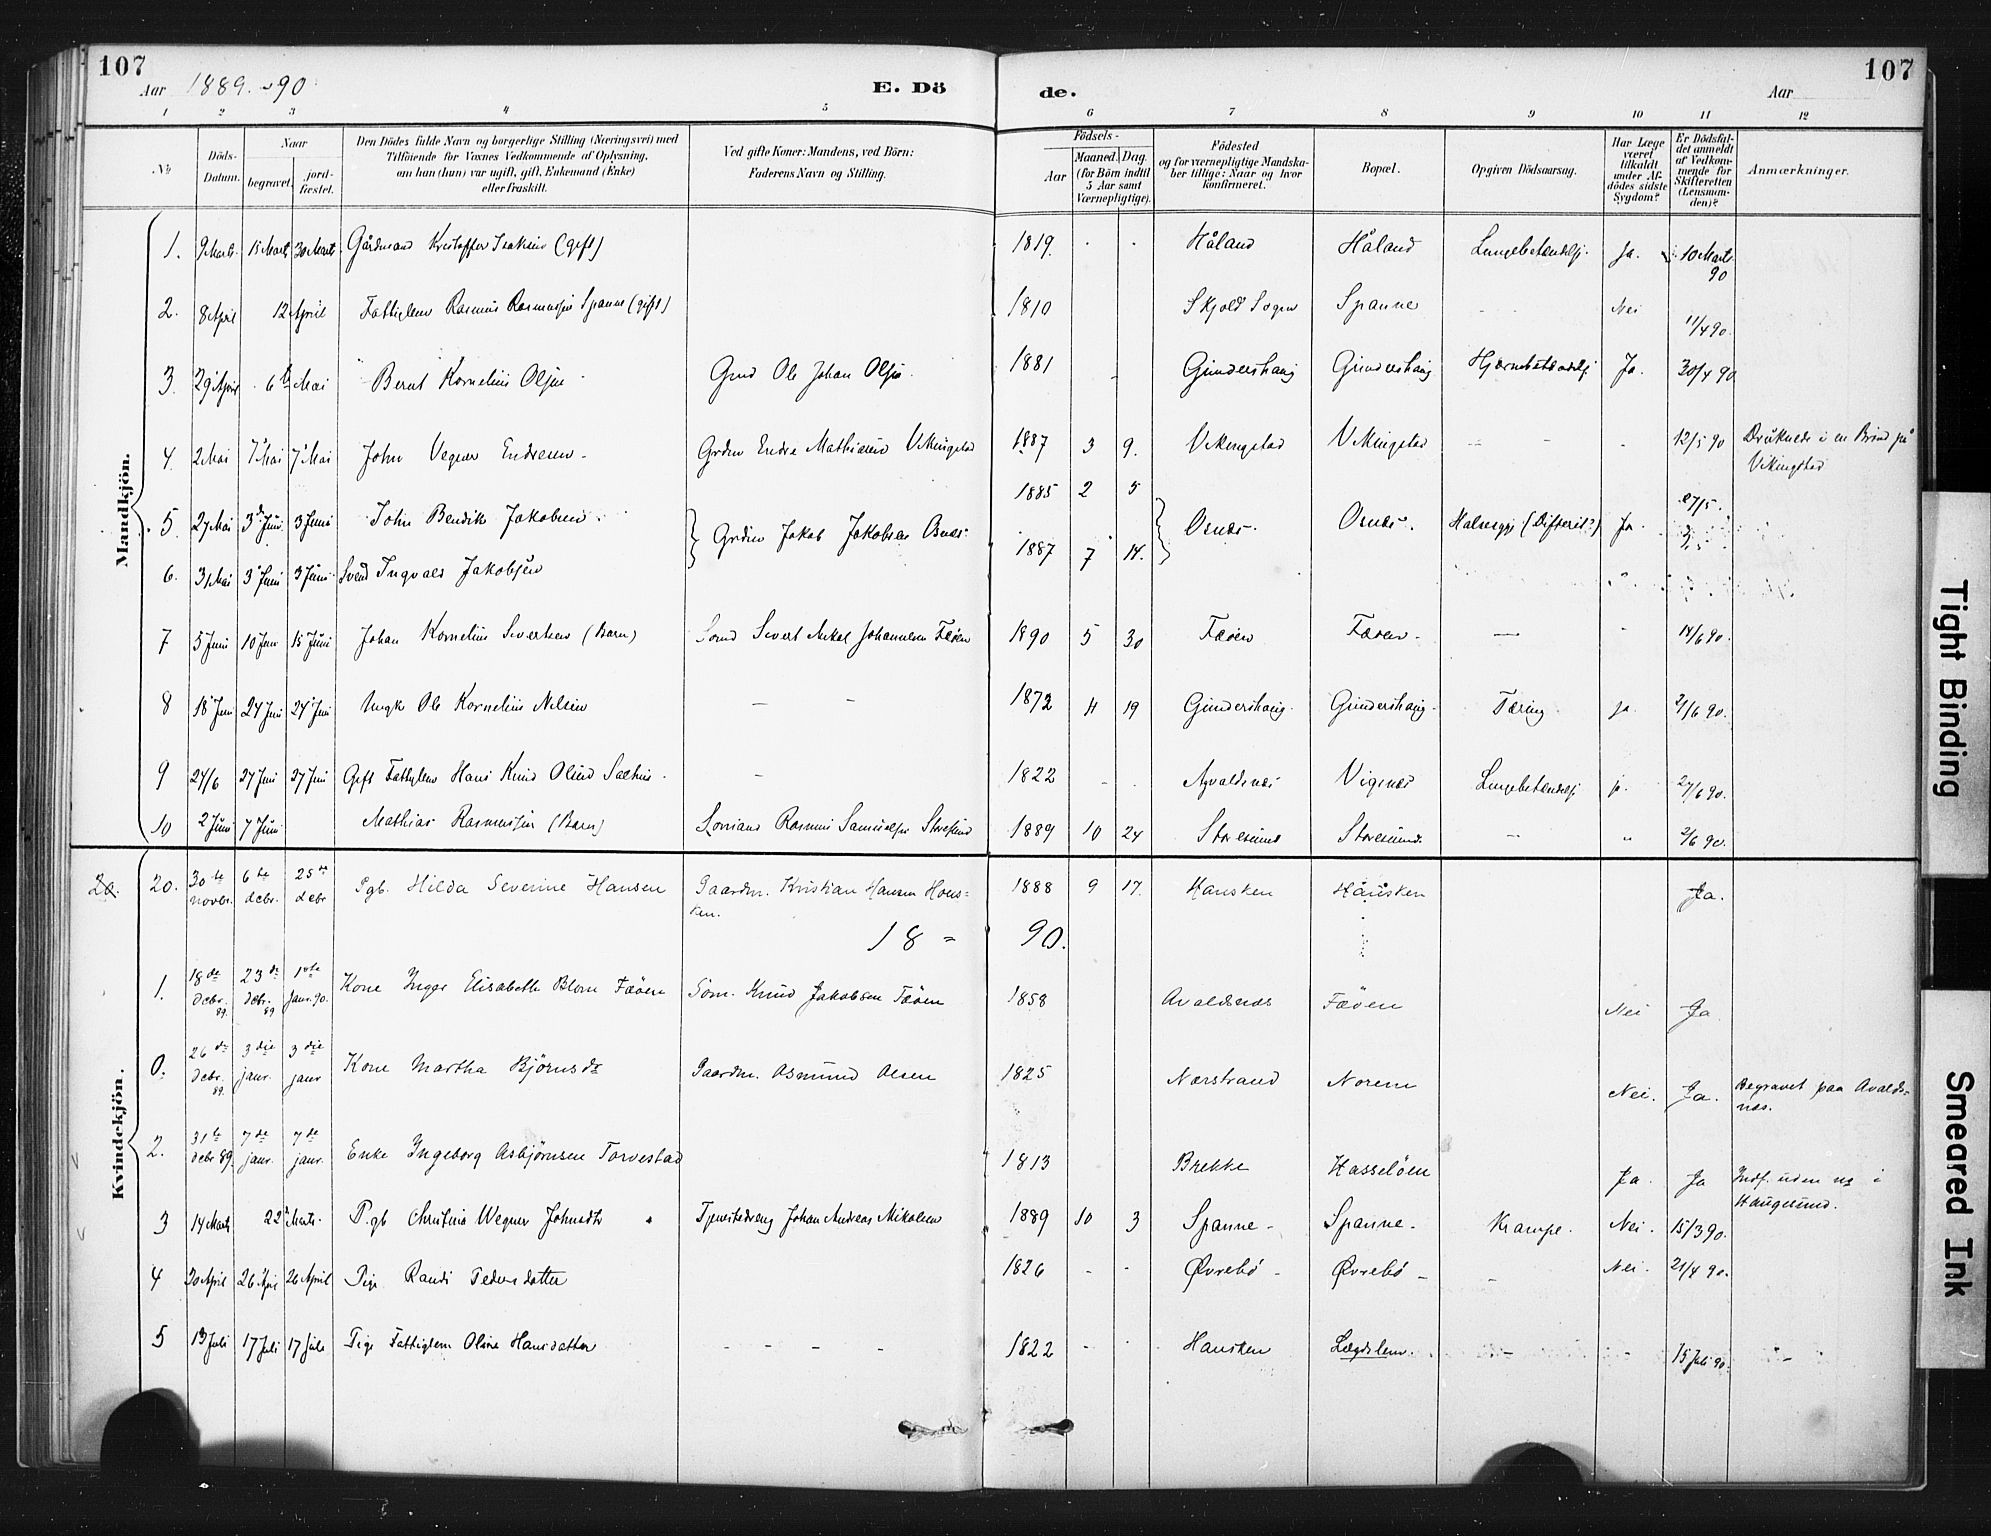 107
Aar 1889-90.
E. Dö
de.
Aar
107
1 2 3 4 5 6 7 8 9 10 11 12
No
Döds-Datum.
Naar
begravet.
jord-fæstet.
Den Dödes fulde Navn og borgerlige Stilling (Næringsvei) med
Tilföiende for Voxnes Vedkommende af Oplysning,
om han (hun) var ugift, gift, Enkemand (Enke)
eller fraskilt.
Ved gifte Koner: Mandens, ved Börn:
Faderens Navn og Stilling.
Födsels-
Aar
Maaned. Dag.
(for Börn indtil
5 Aar samt
Værnepligtige).
Födested
og for værnepligtige Mandska-
ber tillige: Naar og hvor
konfirmeret.
Bopæl.
Opgiven Dödsaarsag.
Har Læge
været
tilkaldt
under Af-
dödes sidste
Sygdom?
Er Dödsfal-
det anmeldt
af Vedkom-
mende for
Skifteretten
(Lensman-
den)?
Anmærkninger.
Mandkjön.
1. 9 Marts 15 Marts 30 Marts Gårdmand Kristoffer Isaksen (gift) 1819. Håland Håland Lungebetændelse. Ja. 10 Marts 90
2. 8 April 12 April Fattiglem Rasmus Rasmussen Spanne (gift) 1810 Skjold Sogn Spanne Nei 11/4 90.
3. 29 April 6 Mai Bernt Kornelius Olsen Grmd Ole Johan Olsen 1881 Gundershaug Gundershaug Hjernebetændelse Ja. 30/4 90
4. 2 Mai 7 Mai 7 Mai John Vegner Endresen Grdm Endre Mathiesen Vikingstad 1887 3 9. Vikingstad Vikingstad 12/5 90 Druknede i en Brønd på
Vikingstad
5. 27 Mai 3 Juni 3 Juni John Bendik Jakobsen Grdm Jakob Jakobsen Osnes 1885 2 5 Osnes. Osnes. Halsesyge (Difterit?) Ja 27/5.
6. 31 Mai 3 Juni 3 Juni Svend Ingvald Jakobsen 1887 7 14.
7 5 Juni 10 Juni 15 Juni Johan Kornelius Sivertsen (Barn) Sømd Sivert Nikol Johannesen Fæøen 1890 5 30 Fæøen Fæøen. 14/6 90.
8 18 Juni 24 Juni 24 Juni Ungk Ole Kornelius Nilsen 1872 4 19 Gundershaug. Gundershaug. Tæring ja. 21/6 90.
9 24/6 27 Juni 27 Juni Gift Fattiglem Hans Knud Olsen 1822 Avaldsnes Vignes Lungebetændelse ja. 27/6 90.
10 2 Juni 7 Juni Mathias Rasmussen (Barn) Rasmus Samuelsen Storesund 1889 10 24 Storesund Storesund. 2/6 90.
Kvindekjön.
20. 20. 30te novbr. 6te debr. 25de debr Pgb. Hilda Severine Hansen Gaardm. Kristian Hansen Hous-
ken. 1888 9 17. Hausken Hausken Ja.
18 = 90.
1. 18de debr. 89. 23de debr. 89 1ste janr. 90. Kone Inger Elisabeth Blom Fæøen Søm. Knud Jakobsen Fæøen 1858 Avaldsnæs Fæøen Nei Ja
0. 26de debr. 89. 3die janr. 3die janr Kone Martha Bjørnsdr Gaardm. Asmund Olsen 1825 Nærstrand Norem Nei. Ja. Begravet paa Avalds-
næs.
2. 31te debr 89. 7de janr. 7de janr. Enke Ingeborg Asbjørnsen Torvestad 1813 Brekke Hasseløen Ja. Ja Indf. uden no i
Haugesund.
3 14 Marts 22 Marts. P.gb Christina Wegner Johnsdtr Tjenestedreng Johan Andreas Mikalsen 1889 10 3 Spanne Spanne. Krampe. Nei. 15/3 90.
4 20 April 26 April 26 April Pige Randi Pedersdatter 1826 Øvrebø Øvrebø Nei. 21/4 90.
5 13 Juli 17 Juli 17 Juli Pige Fattiglem Oline Hansdatter 1822 Hausken Lægdslem. 15 Juli 90.
Tight Binding
Smeared Ink